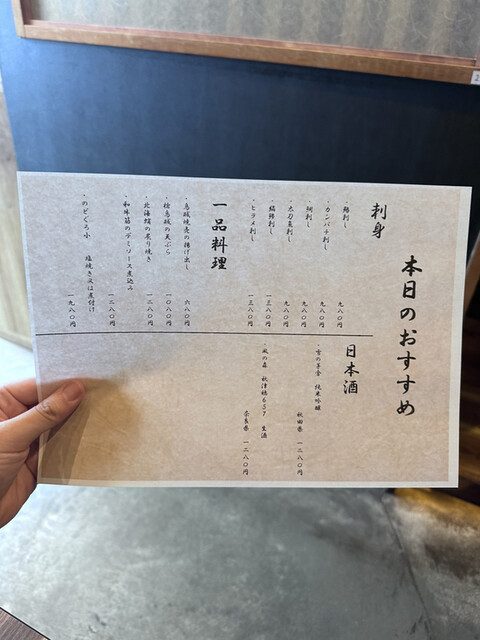 本日のおすすめ
刺身
・鰤刺し 九八〇円
・カンパチ刺し 九八〇円
・鯛刺し 九八〇円
・太刀魚刺し 九八〇円
・縞鯵刺し 一三八〇円
・ヒラメ刺し 一三八〇円
一品料理
・烏賊焼売の揚げ出し 六八〇円
・烏賊の天ぷら 一〇八〇円
・北海蛸の炙り焼き 一二八〇円
・和牛筋のデミソース煮込み 一二八〇円
・のどくろ小 塩焼き又は煮付け 一九八〇円
日本酒
・雪の茅舎 純米吟醸
秋田県 一二八〇円
・風の森 秋津穂657 生酒
奈良県 一二八〇円